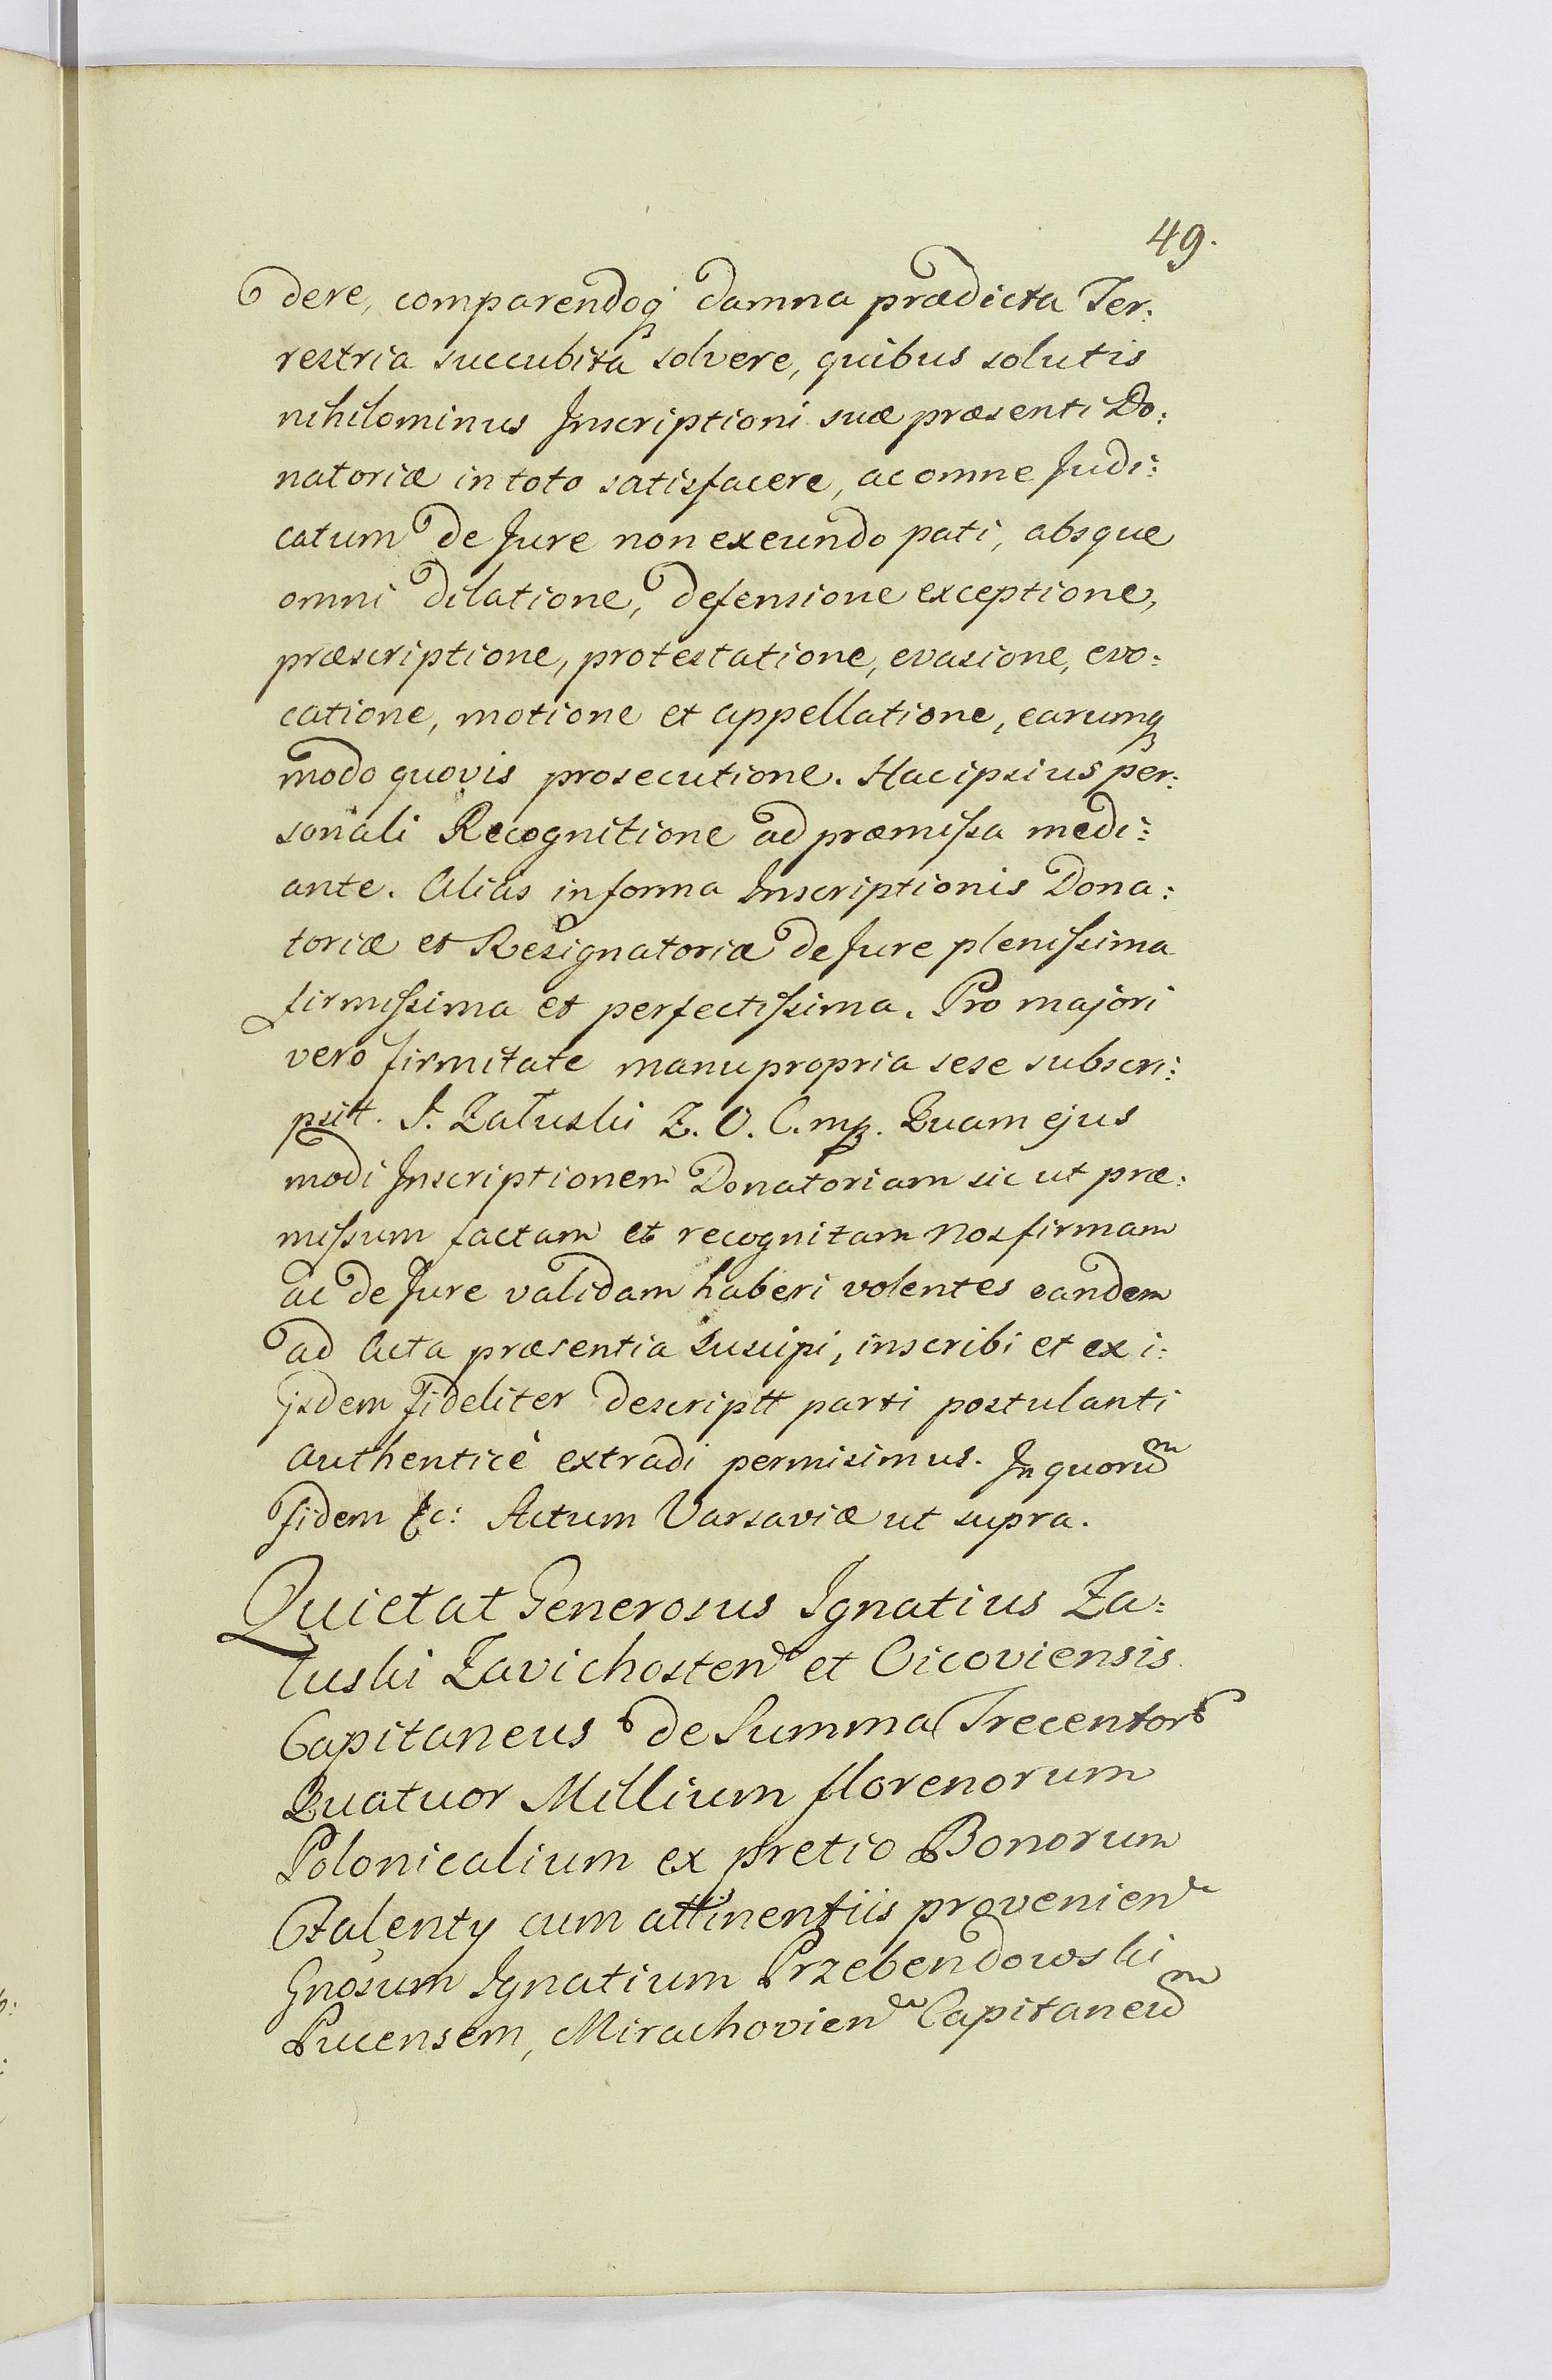 49.
dere, comparendoq́ damna prædicta Ter:
restria succubita solvere, quibus solutis
nihilominus Inscriptioni suæ præsenti Do:
natoriæ in toto satisfacere, ac omne Judi:
catum de Jure non exeundo pati, absque
omni dilatione, defensione exceptione,
præscriptione, protestatione, evasione, evo:
catione, motione et appellatione, earumq
modo quovis prosecutione. Hac ipsius per:
sonali Recognitione ad præmissa medi:
ante. Alias in forma Inscriptionis Dona:
toriæ et Resignatoriæ de Jure plenissima
firmissima et perfectissima. Pro majori
vero firmitate manu propria sese subscri:
psit. I. Załuski Z. O. C. mp. Quam ejus
modi Inscriptionem Donatoriam sic ut præ:
missum factam et recognitam nos firmam
ac de Jure validam haberi volentes eandem
ad Acta præsentia suscipi, inscribi et ex i:
jsdem fideliter descriptt parti postulanti
authenticè extradi permisimus. In quorũm
fidem &c: Actum Varsaviæ ut supra.
Quietat Generosus Ignatius Za:
łuski Zavichosten et Oicoviensis
Capitaneus de Summa Trecentor
Quatuor Millium florenorum
Polonicalium ex pretio Bonorum
Otalenty cum attinentiis provenien
Gnosum Ignatium Przebendowski
Pucensem, Mirachovien Capitaneũm